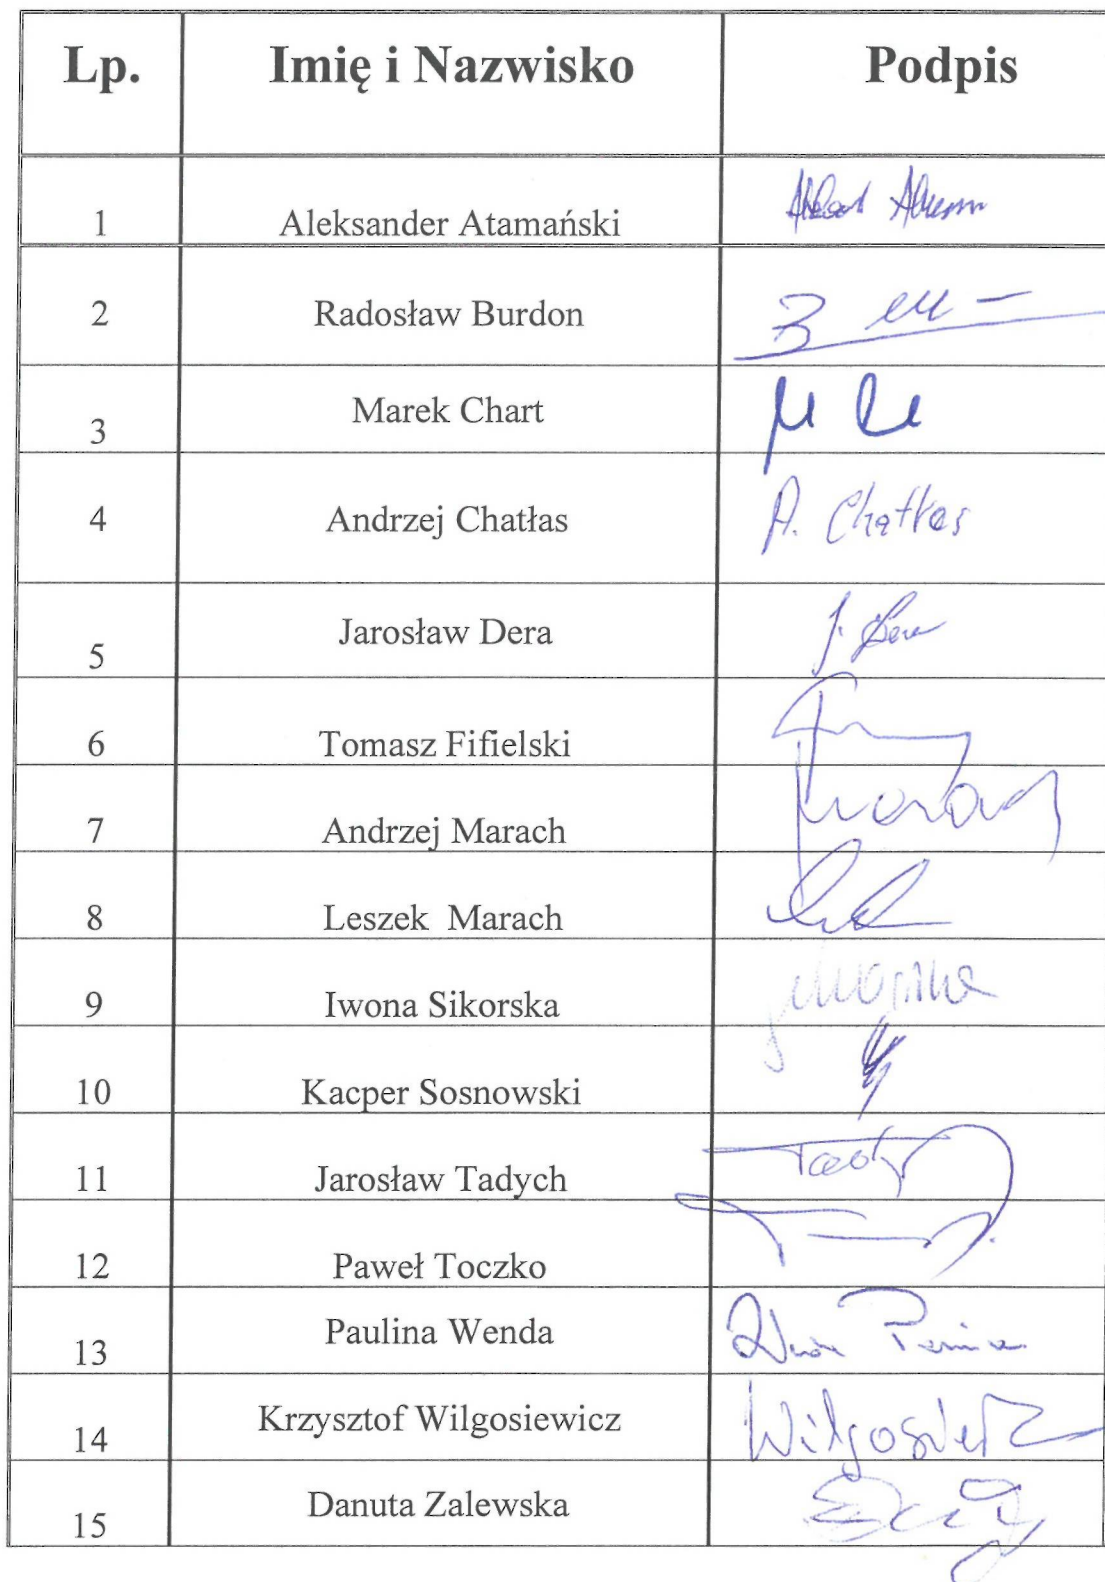 Lp. Imię i Nazwisko Podpis
1 Aleksander Atamański
2 Radosław Burdon
3 Marek Chart
4 Andrzej Chatłas A. Chatłas
5 Jarosław Dera J. Dera
6 Tomasz Fifielski
7 Andrzej Marach Marach
8 Leszek Marach
9 Iwona Sikorska
10 Kacper Sosnowski
11 Jarosław Tadych
12 Paweł Toczko
13 Paulina Wenda
14 Krzysztof Wilgosiewicz
15 Danuta Zalewska